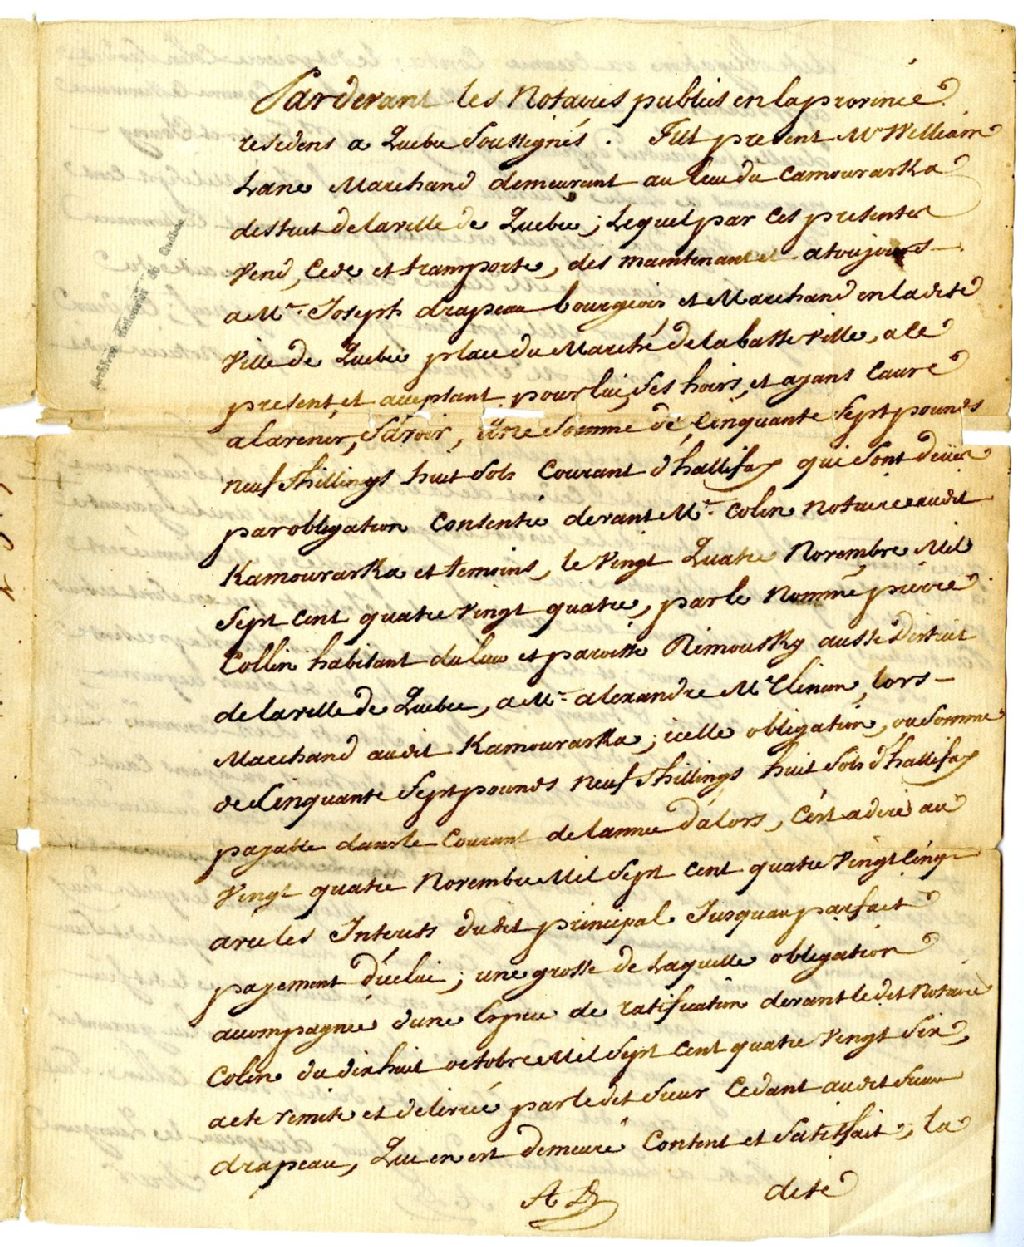 Pardevant les Notaires publics en la province
résidens a Quebec Soussignés. Fut present Mr William
Lane Marchand demeurant au lieu du Camouraska
destrict de la ville de Quebec; Lequel par Ces presentes
Vend, Cede et transporte, dés maintenant et a toujours
a Mr. Joseph drapeau bourgeois et Marchand en la dite
Ville de Quebec place du Marché de la basse ville, a ce
present et acceptant pour lui, Ses hoirs, et ayans Cause
a lavenir, Savoir, Une Somme de Cinquante Sept pounds
neuf Shillings huit Sols Courant d'hallifax qui Sont düe
par obligation Consentie devant Mr. Colin Notaire audit
Kamouraska et temoins, le Vingt Quatre Novembre Mil
Sept Cent quatre Vingt quatre, par le Nommé pierre
Collin habitant du lieu et paroisse Rimousky aussi district
de la ville de Quebec, a Mr. alexandre McClenan, lors
Marchand audit Kamouraska; icelle obligation, ou Somme
de Cinquante Sept pounds Neuf Shillings huit Sols d'hallifax
payable dans le Courant de lannee d'alors, C'est a dire au
Vingt quatre Novembre Mil Sept Cent quatre Vingt Cinq
avec les Interets dudit principal Jusquau parfait
payement d'icelui; une grosse de Laquelle obligation
accompagnée d'une Espece de ratification devant ledit Notaire
Colin du dix huit octobre Mil Sept Cent quatre Vingt Six,
a eté remise et delivrée par ledit Sieur Cedant audit Sieur
drapeau, Qui en est demeuré Content et Satisfait; la
A D
dite